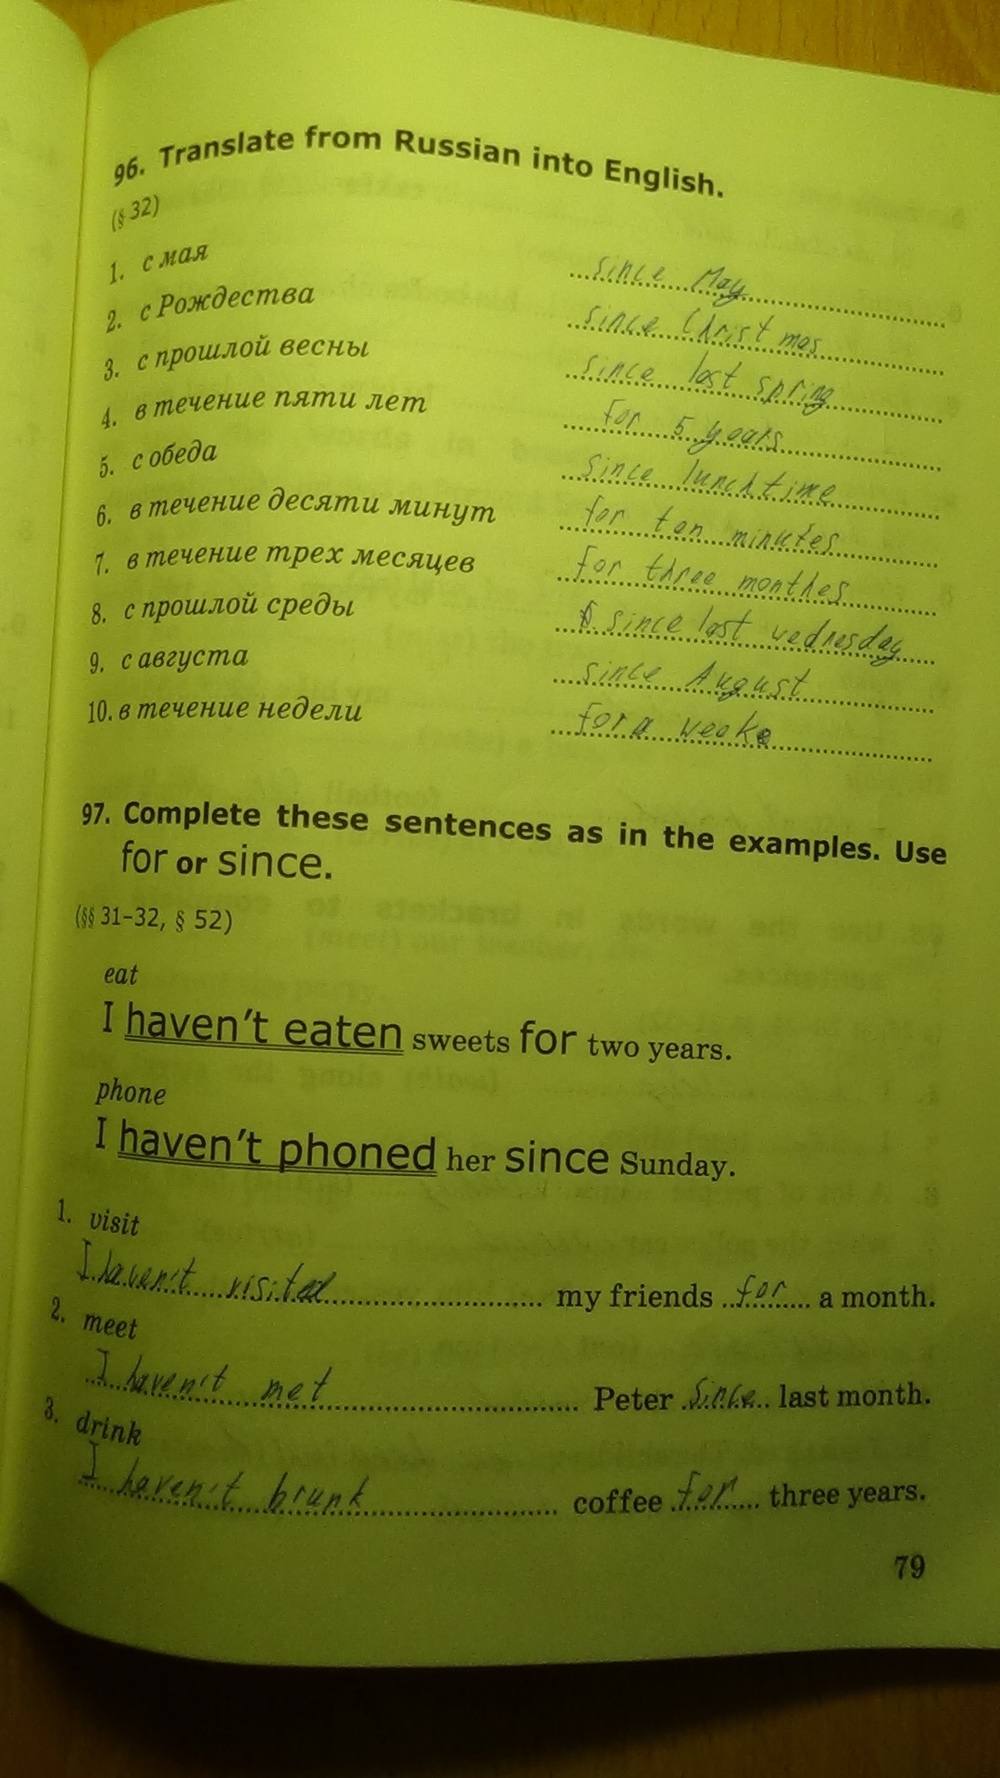 96. Translate from Russian into English.
(§ 32)
1. с мая since May
2. с Рождества since Christ mas
3. с прошлой весны since last spring
4. в течение пяти лет for 5 years
5. с обеда since lunch time
6. в течение десяти минут for ten minutes
7. в течение трех месяцев for three monthes
8. с прошлой среды since last wednesday
9. с августа since August
10. в течение недели for a week
97. Complete these sentences as in the examples. Use
for or since.
(§§ 31–32, § 52)
eat
I haven't eaten sweets for two years.
phone
I haven't phoned her since Sunday.
1. visit
I haven't visited my friends for a month.
2. meet
I haven't met Peter since last month.
3. drink
I haven't brunk coffee for three years.
79